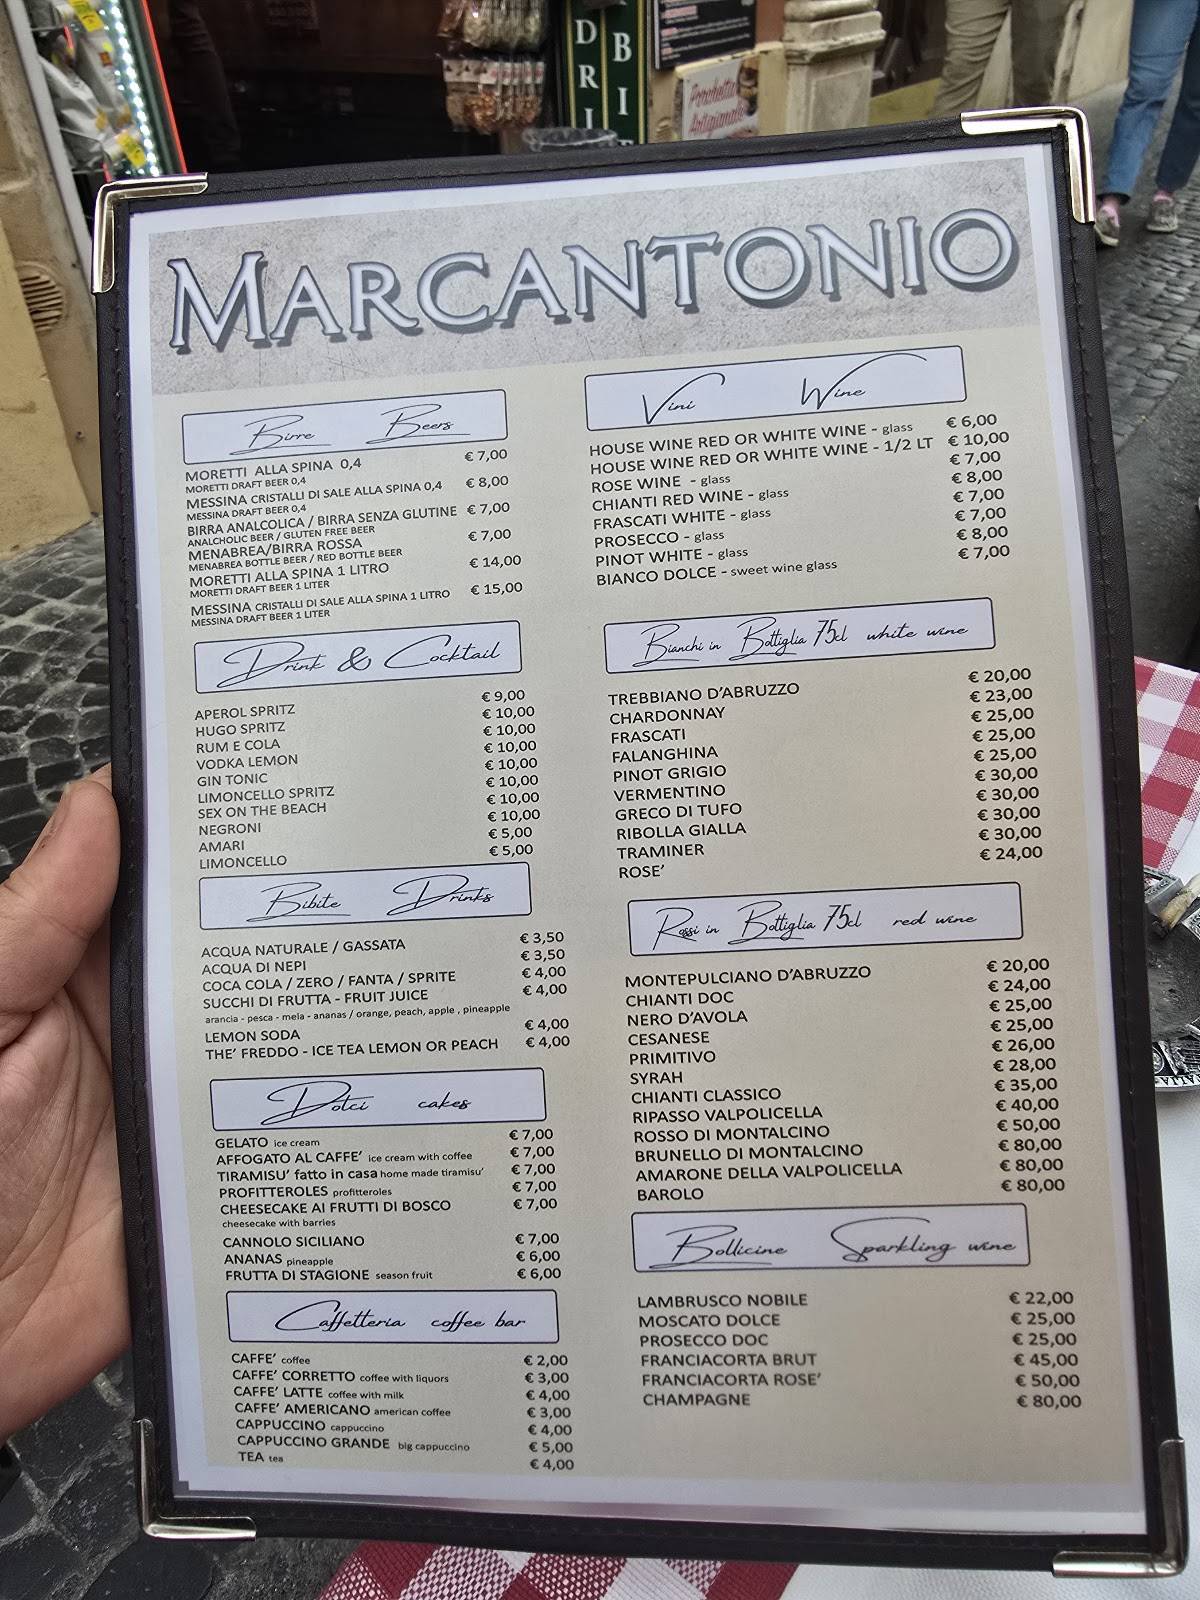 DRI
BI
Porchetta
Artigianale
MARCANTONIO
Birre Beers
MORETTI ALLA SPINA 0,4 € 7,00
MORETTI DRAFT BEER 0,4
MESSINA CRISTALLI DI SALE ALLA SPINA 0,4 € 8,00
MESSINA DRAFT BEER 0,4
BIRRA ANALCOLICA / BIRRA SENZA GLUTINE € 7,00
ANALCHOLIC BEER / GLUTEN FREE BEER
MENABREA/BIRRA ROSSA € 7,00
MENABREA BOTTLE BEER / RED BOTTLE BEER
MORETTI ALLA SPINA 1 LITRO € 14,00
MORETTI DRAFT BEER 1 LITER
MESSINA CRISTALLI DI SALE ALLA SPINA 1 LITRO € 15,00
MESSINA DRAFT BEER 1 LITER
Drink & Cocktail
APEROL SPRITZ € 9,00
HUGO SPRITZ € 10,00
RUM E COLA € 10,00
VODKA LEMON € 10,00
GIN TONIC € 10,00
LIMONCELLO SPRITZ € 10,00
SEX ON THE BEACH € 10,00
NEGRONI € 10,00
AMARI € 5,00
LIMONCELLO € 5,00
Bibite Drinks
ACQUA NATURALE / GASSATA € 3,50
ACQUA DI NEPI € 3,50
COCA COLA / ZERO / FANTA / SPRITE € 4,00
SUCCHI DI FRUTTA - FRUIT JUICE € 4,00
arancia - pesca - mela - ananas / orange, peach, apple , pineapple
LEMON SODA € 4,00
THE' FREDDO - ICE TEA LEMON OR PEACH € 4,00
Dolci cakes
GELATO ice cream € 7,00
AFFOGATO AL CAFFE' ice cream with coffee € 7,00
TIRAMISU' fatto in casa home made tiramisu' € 7,00
PROFITTEROLES profitteroles € 7,00
CHEESECAKE AI FRUTTI DI BOSCO € 7,00
cheesecake with barries
CANNOLO SICILIANO € 7,00
ANANAS pineapple € 6,00
FRUTTA DI STAGIONE season fruit € 6,00
Caffetteria coffee bar
CAFFE' coffee € 2,00
CAFFE' CORRETTO coffee with liquors € 3,00
CAFFE' LATTE coffee with milk € 4,00
CAFFE' AMERICANO american coffee € 3,00
CAPPUCCINO cappuccino € 4,00
CAPPUCCINO GRANDE big cappuccino € 5,00
TEA tea € 4,00
Vini Wine
HOUSE WINE RED OR WHITE WINE - glass € 6,00
HOUSE WINE RED OR WHITE WINE - 1/2 LT € 10,00
ROSE WINE - glass € 7,00
CHIANTI RED WINE - glass € 8,00
FRASCATI WHITE - glass € 7,00
PROSECCO - glass € 7,00
PINOT WHITE - glass € 8,00
BIANCO DOLCE - sweet wine glass € 7,00
Bianchi in Bottiglia 75cl white wine
TREBBIANO D'ABRUZZO € 20,00
CHARDONNAY € 23,00
FRASCATI € 25,00
FALANGHINA € 25,00
PINOT GRIGIO € 25,00
VERMENTINO € 30,00
GRECO DI TUFO € 30,00
RIBOLLA GIALLA € 30,00
TRAMINER € 30,00
ROSE' € 24,00
Rossi in Bottiglia 75cl red wine
MONTEPULCIANO D'ABRUZZO € 20,00
CHIANTI DOC € 24,00
NERO D'AVOLA € 25,00
CESANESE € 25,00
PRIMITIVO € 26,00
SYRAH € 28,00
CHIANTI CLASSICO € 35,00
RIPASSO VALPOLICELLA € 40,00
ROSSO DI MONTALCINO € 50,00
BRUNELLO DI MONTALCINO € 80,00
AMARONE DELLA VALPOLICELLA € 80,00
BAROLO € 80,00
Bollicine Sparkling wine
LAMBRUSCO NOBILE € 22,00
MOSCATO DOLCE € 25,00
PROSECCO DOC € 25,00
FRANCIACORTA BRUT € 45,00
FRANCIACORTA ROSE' € 50,00
CHAMPAGNE € 80,00